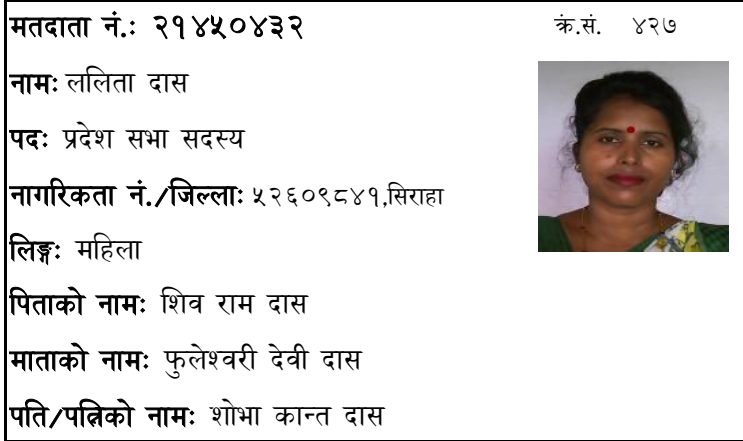 मतदाता नं.: २१४५०४३२ क्रं.सं. ४२७
नामः ललिता दास
पदः प्रदेश सभा सदस्य
नागरिकता नं./जिल्लाः ५२६०९८४१,सिराहा
लिङ्गः महिला
पिताको नामः शिव राम दास
माताको नामः फुलेश्वरी देवी दास
पति/पत्निको नामः शोभा कान्त दास